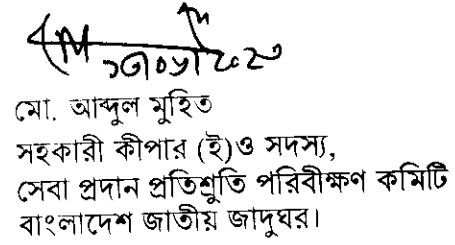 মো. আব্দুল মুহিত
সহকারী কীপার (ই)ও সদস্য,
সেবা প্রদান প্রতিশ্রুতি পরিবীক্ষণ কমিটি
বাংলাদেশ জাতীয় জাদুঘর।